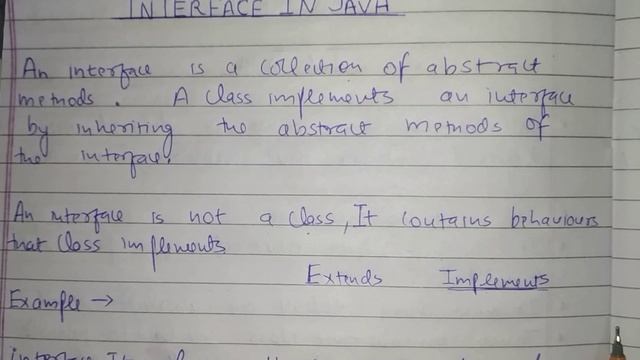 INTERFACE IN JAVA
An interface is a collection of abstract
methods. A class implements an interface
by inheriting the abstract methods of
the interface.
An nterface is not a class, It contains behaviours
that class implements
Extends Implements
Example →